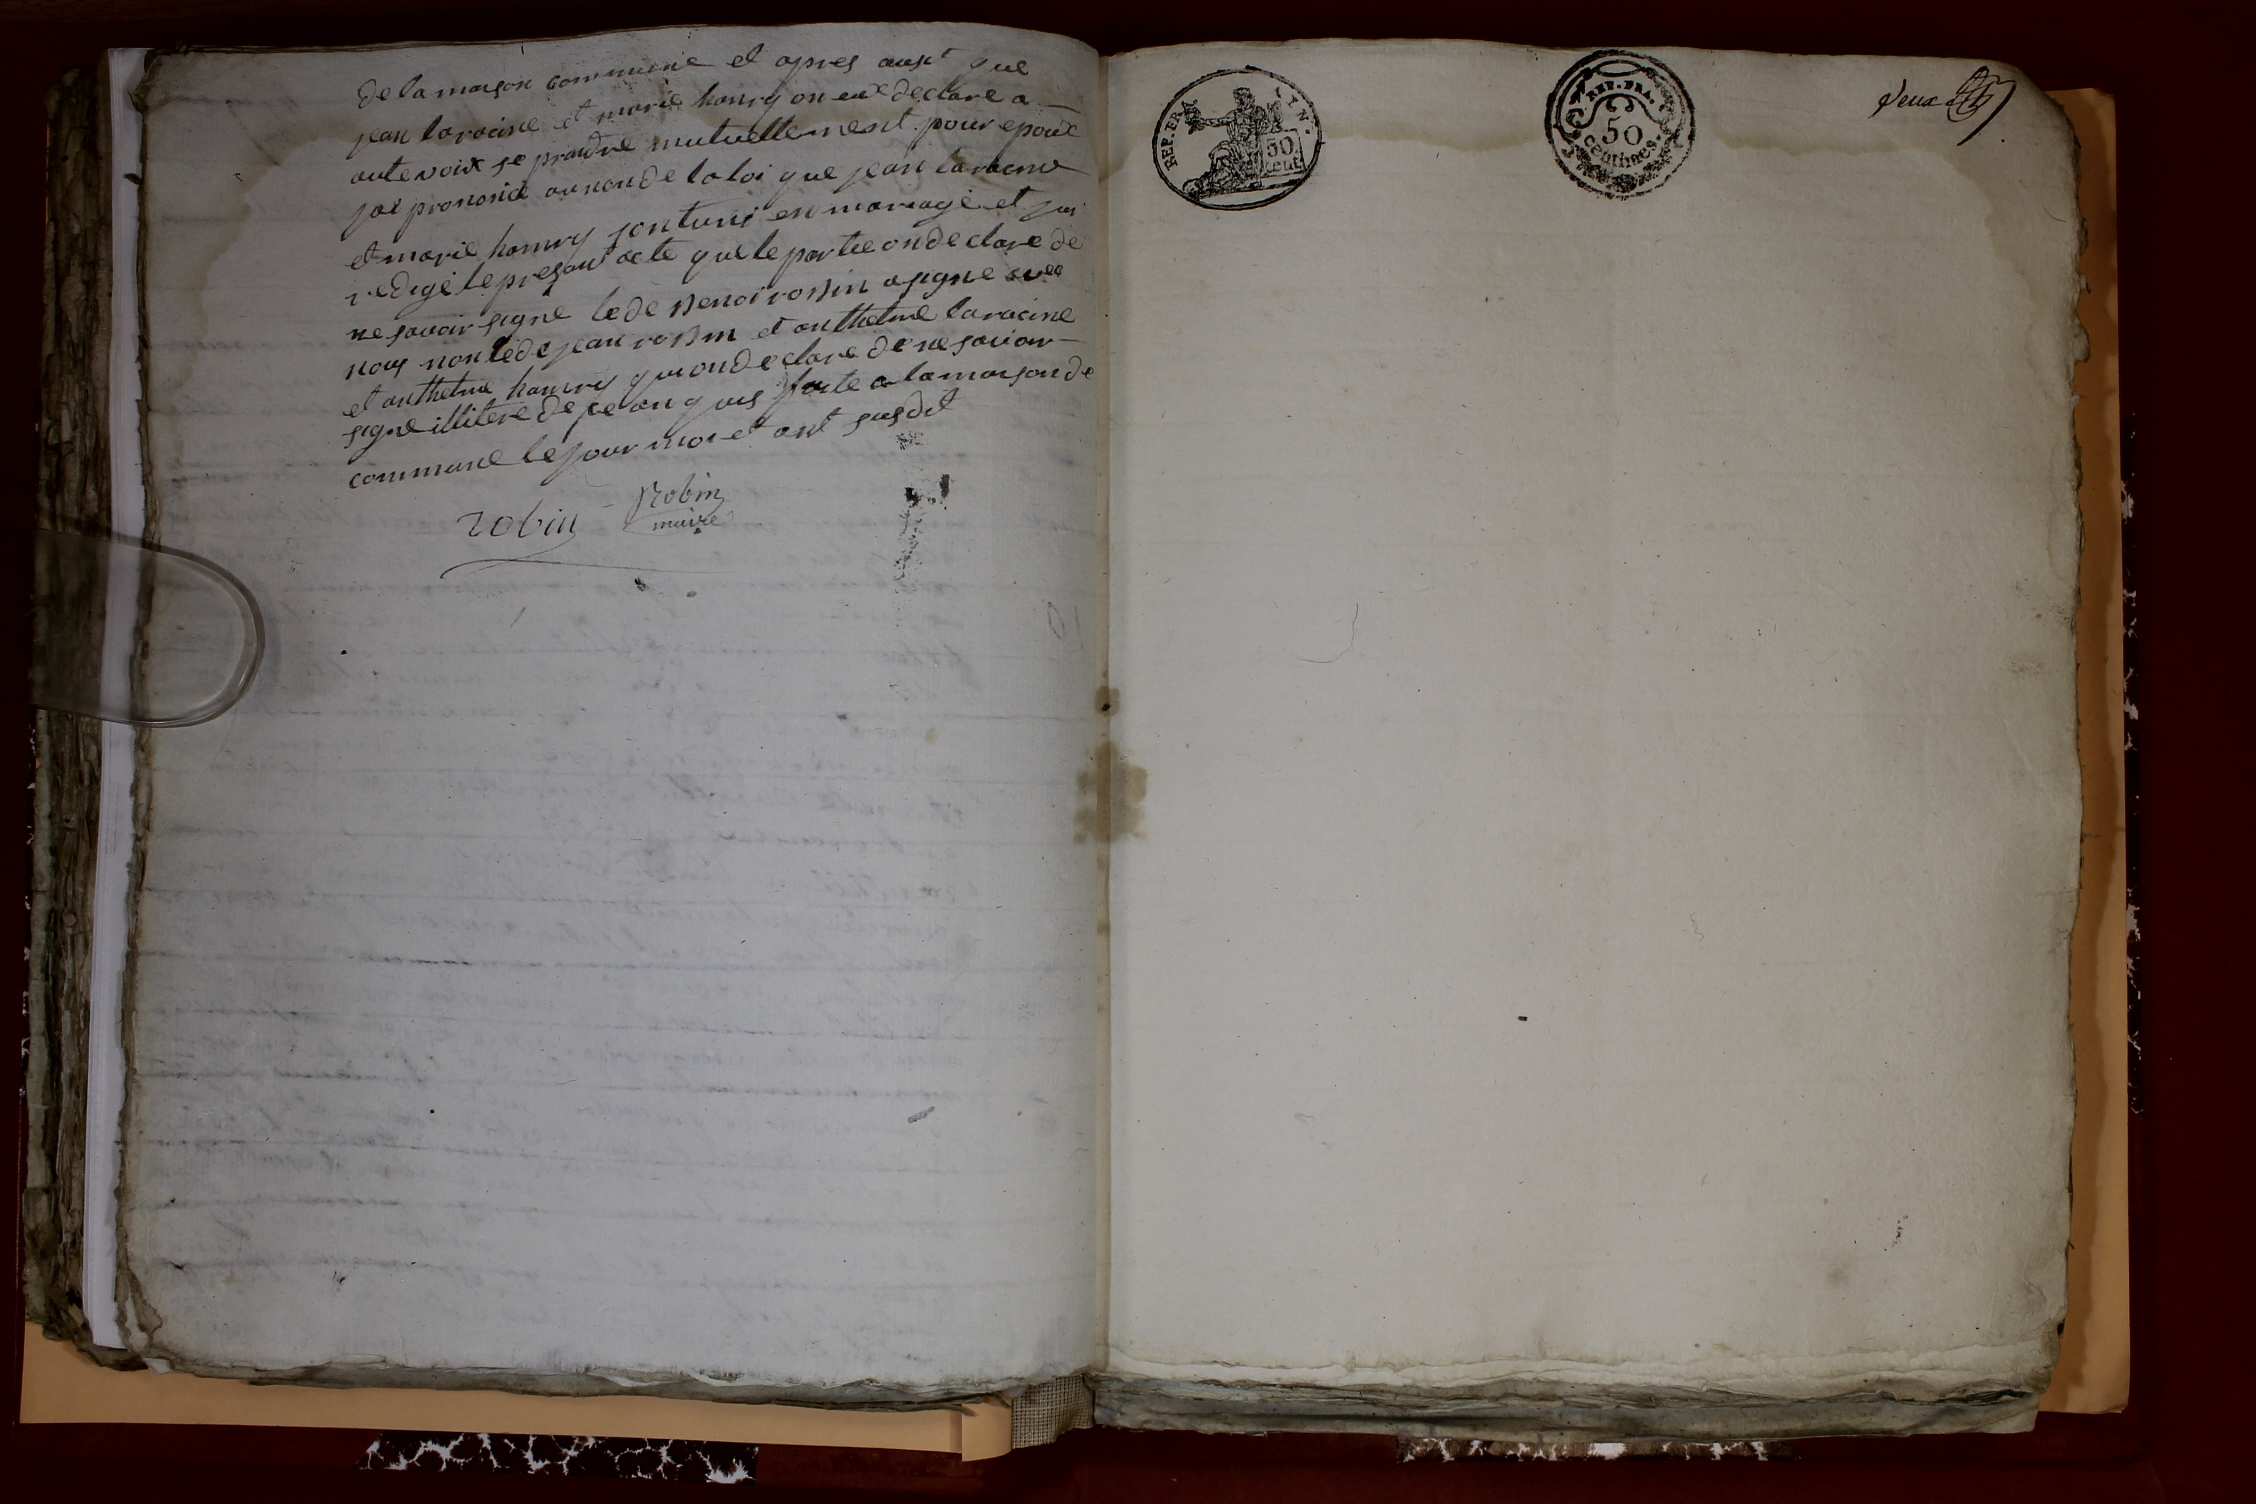 de la maison commune et apres aust que
jean laracine et marie hanry on eue declare a
aute voix se prandre mutuellement pour epoux
jai prononcé au non de la loi que jean laracine
et marie hanry sont uni en mariage et jai
redigé le presant acte que le partie on declare de
ne savoir signe le de benoi robin a signe avec
nous non le de jean robin et anthelme laracine
et anthelme hanry qui on declare de ne savoir
signe illitere de ce anquis faite a la maison de
commune le jour moi et ant susdit
robin Robin
maire
REP. FRA 50 CENT
REP. FRA. 50 centimes.
deux